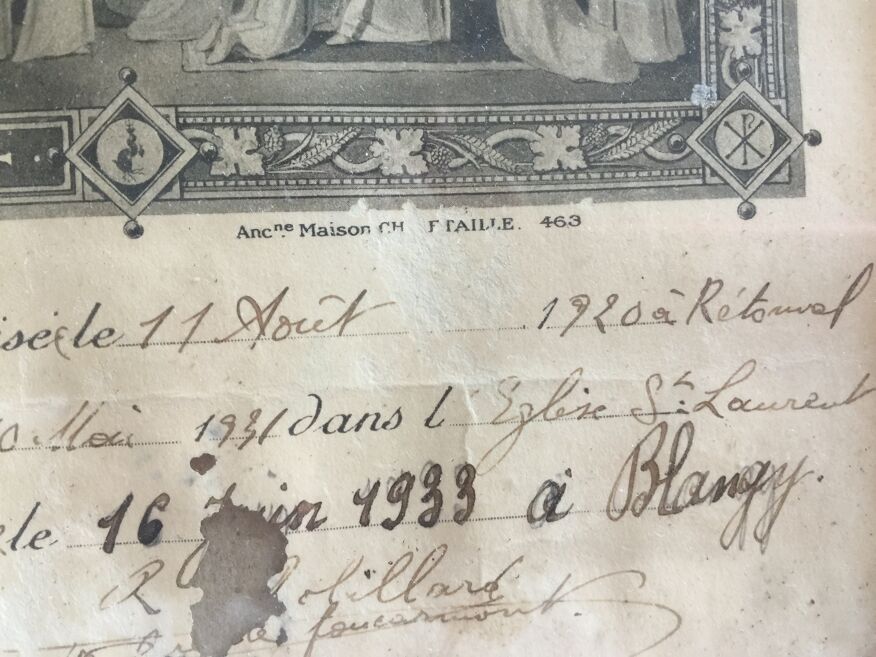 Anc.ne Maison CH F TAILLE. 463
isé le 11 Août 1920 à Rétonval
0 Mai 1931 dans l'Eglise St. Laurent
le 16 Juin 1933 à Blangy.
R
Foucarmont.